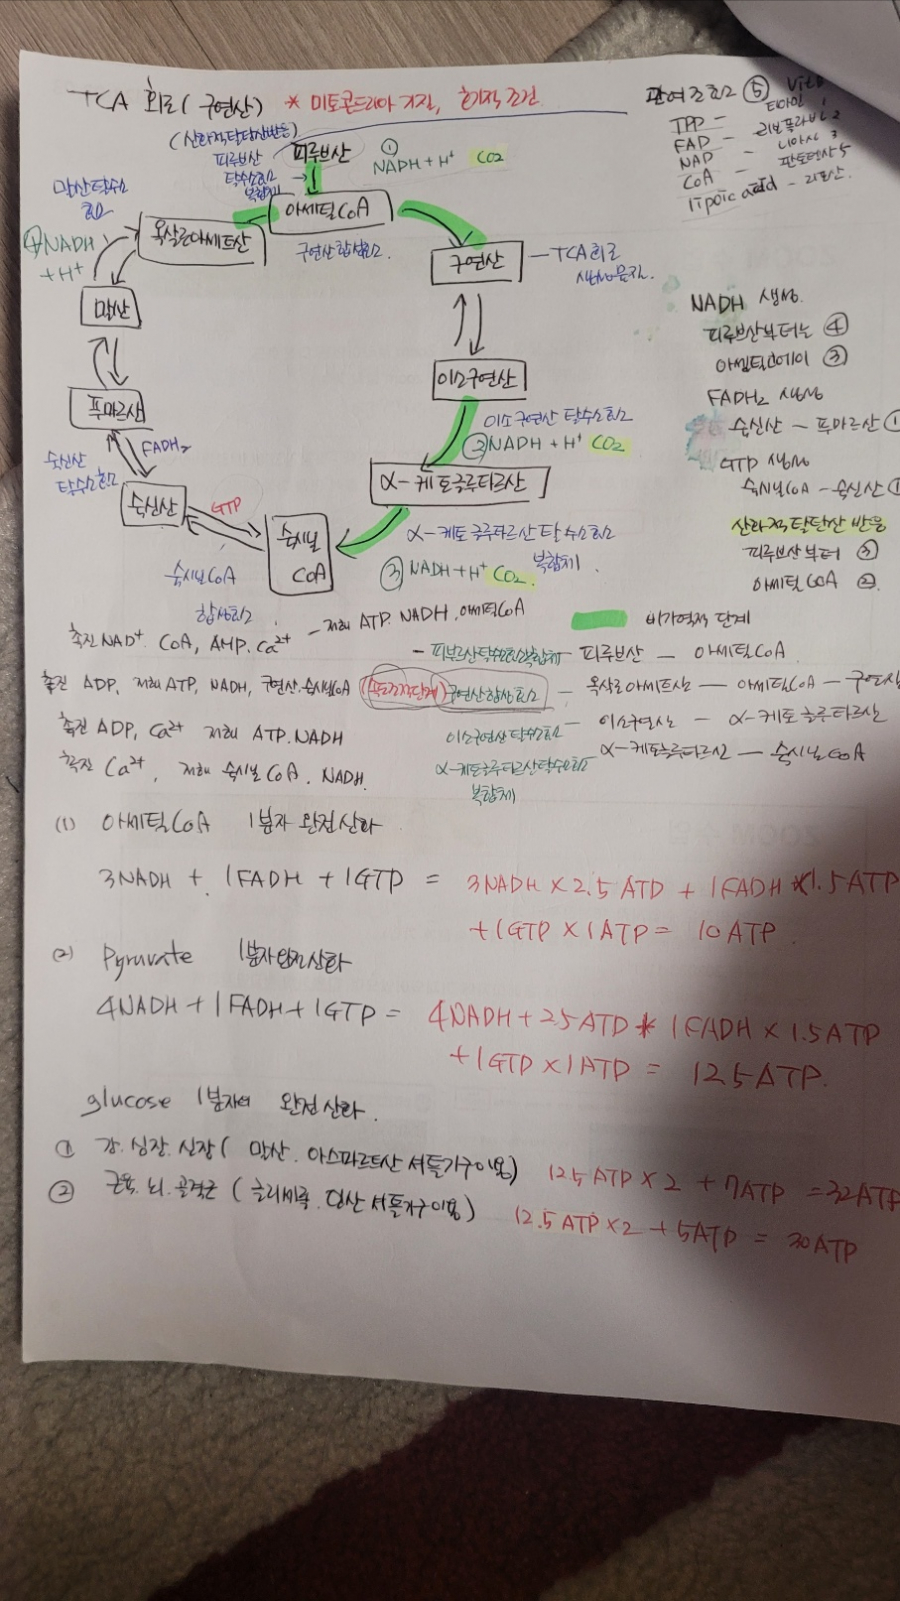 TCA 회로 (구연산) * 미토콘드리아 기질, 호기적 조건
(산화적탈탄산반응)
피루브산
탈수소효소
복합체
피루브산
① NADH + H⁺ CO2
아세틸CoA
구연산합성효소.
옥살로아세트산
말산탈수소
효소
④NADH
+ H⁺
말산
푸마르산
FADH₂
숙신산
탈수소효소
숙신산
GTP
숙시닐CoA
합성효소
숙시닐
CoA
구연산
TCA회로
생성물질.
이소구연산
이소구연산 탈수소효소
②NADH + H⁺ CO2
α-케토글루타르산
α-케토글루타르산 탈수소효소
복합체.
③ NADH + H⁺ CO2.
관여조효소 ⑤ VitB
TPP - 티아민 1
FAD - 리보플라빈 2
NAD - 니아신 3
CoA - 판토텐산 5
lipoic acid - 리포산.
NADH 생성.
피루브산부터는 ④
아세틸코에이 ③
FADH₂ 생성
숙신산 - 푸마르산 ①
GTP 생성
숙시닐CoA - 숙신산 ①
산화적탈탄산 반응
피루브산부터 ③
아세틸 CoA ②
비가역적 단계
촉진 NAD⁺ CoA, AMP. Ca²⁺ - 저해 ATP. NADH. 아세틸CoA
- 피루브산탈수소효소복합체 - 피루브산 - 아세틸CoA
촉진 ADP, 저해 ATP, NADH, 구연산. 숙시닐CoA (속도조절단계) 구연산합성효소 - 옥살로아세트산 - 아세틸CoA - 구연산
촉진 ADP, Ca²⁺ 저해 ATP. NADH
이소구연산 탈수소효소 - 이소구연산 - α-케토글루타르산
촉진 Ca²⁺, 저해 숙시닐 CoA. NADH.
α-케토글루타르산탈수소효소 - α-케토글루타르산 - 숙시닐CoA
복합체
(1) 아세틸CoA 1분자 완전산화
3NADH + 1FADH + 1GTP = 3NADH × 2.5 ATP + 1FADH × 1.5 ATP
+ 1GTP × 1ATP = 10 ATP.
(2) Pyruvate 1분자완전산화
4NADH + 1FADH + 1GTP = 4NADH + 2.5 ATP * 1FADH × 1.5 ATP
+ 1GTP × 1ATP = 12.5 ATP.
glucose 1분자의 완전산화.
① 간. 심장. 신장 ( 말산. 아스파르트산 셔틀기구이용) 12.5 ATP × 2 + 7ATP = 32ATP
② 근육. 뇌. 골격근 ( 글리세롤. 인산 셔틀기구이용) 12.5 ATP × 2 + 5ATP = 30 ATP